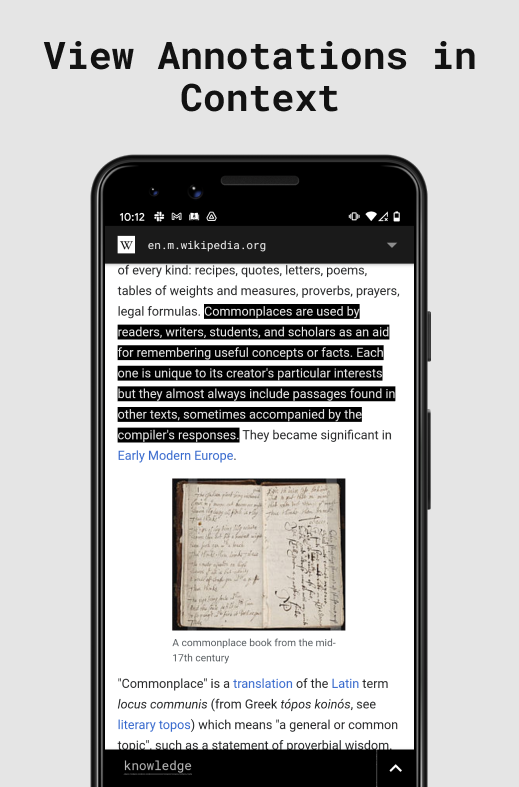 View Annotations in
Context
10:12
W en.m.wikipedia.org
of every kind: recipes, quotes, letters, poems,
tables of weights and measures, proverbs, prayers,
legal formulas. Commonplaces are used by
readers, writers, students, and scholars as an aid
for remembering useful concepts or facts. Each
one is unique to its creator's particular interests
but they almost always include passages found in
other texts, sometimes accompanied by the
compiler's responses. They became significant in
Early Modern Europe.
A commonplace book from the mid-
17th century
"Commonplace" is a translation of the Latin term
locus communis (from Greek tópos koinós, see
literary topos) which means "a general or common
topic", such as a statement of proverbial wisdom.
knowledge